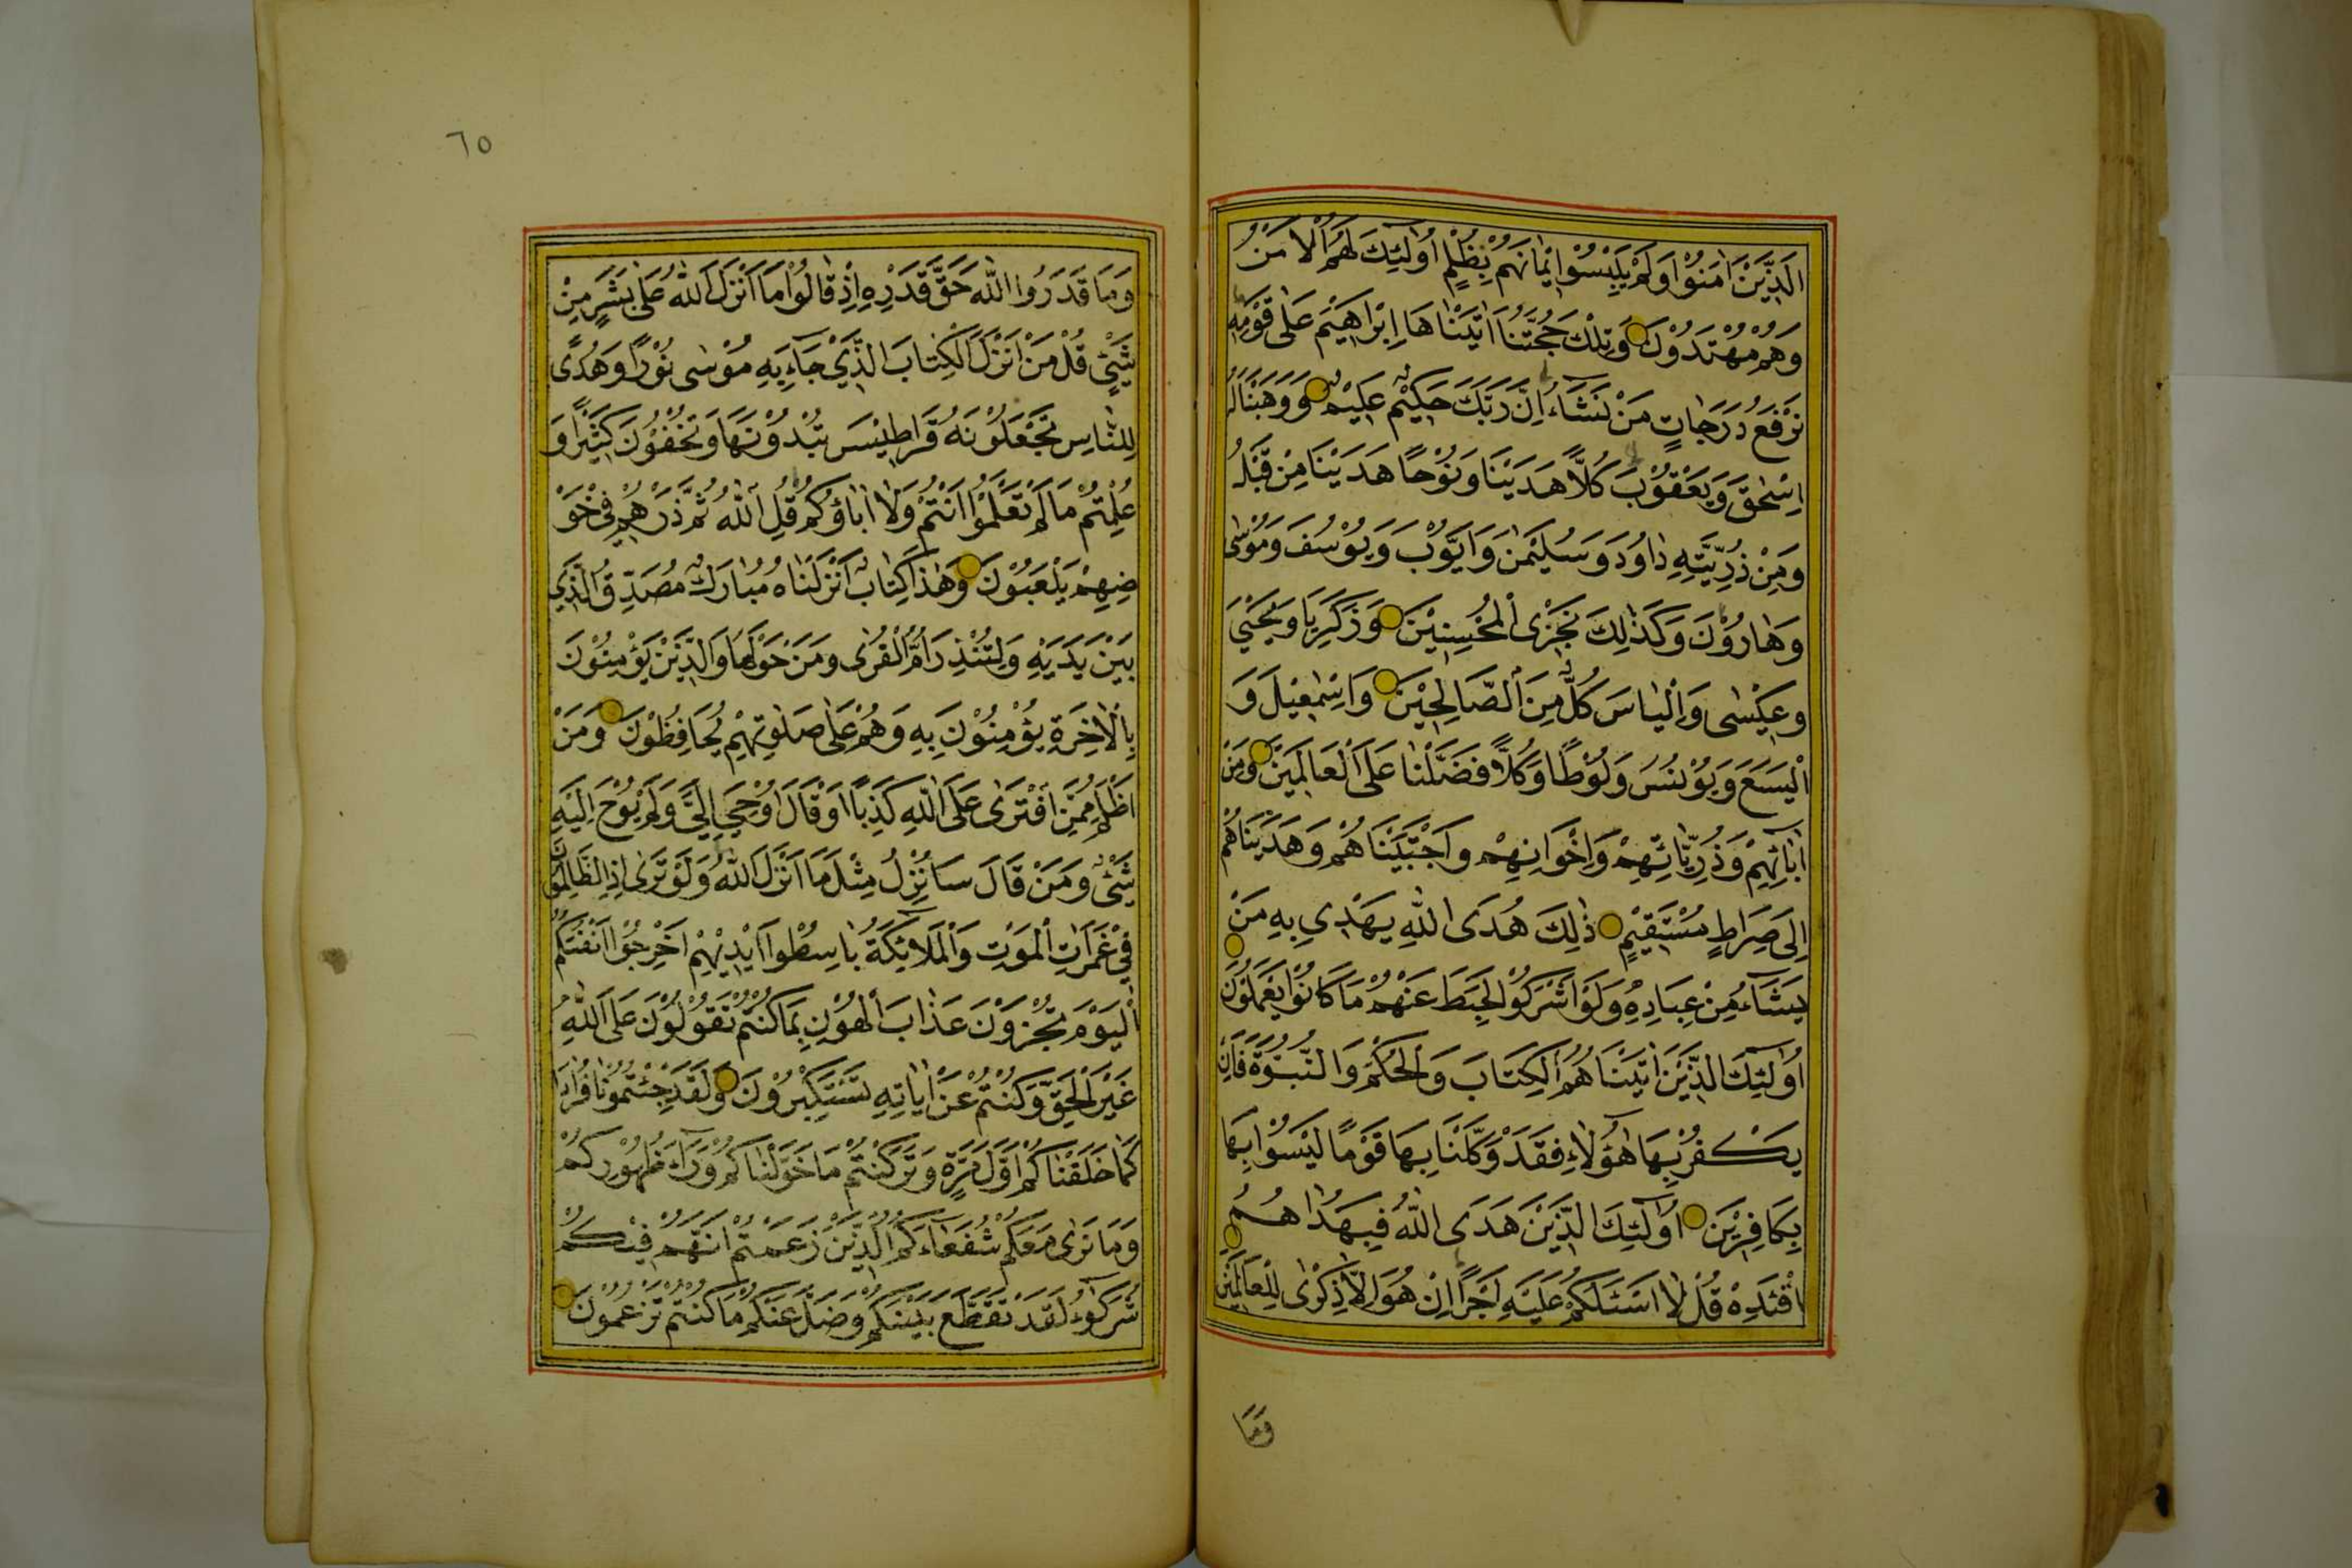 اَلَّذِيْنَ اٰمَنُوْا وَلَمْ يَلْبِسُوْا اِيْمَانَهُمْ بِظُلْمٍ اُولٰئِكَ لَهُمُ الْاَمْنُ
وَهُمْ مُهْتَدُوْنَ وَتِلْكَ حُجَّتُنَا اٰتَيْنَاهَا اِبْرٰاهِيْمَ عَلٰى قَوْمِهِ
نَرْفَعُ دَرَجَاتٍ مَنْ نَشَاۤءُ اِنَّ رَبَّكَ حَكِيْمٌ عَلِيْمٌ وَوَهَبْنَا لَهُ
اِسْحٰقَ وَيَعْقُوْبَ كُلًّا هَدَيْنَا وَنُوْحًا هَدَيْنَا مِنْ قَبْلُ
وَمِنْ ذُرِّيَّتِهِ دٰاوُدَ وَسُلَيْمٰنَ وَاَيُّوْبَ وَيُوْسُفَ وَمُوْسٰى
وَهٰارُوْنَ وَكَذٰلِكَ نَجْزِى الْمُحْسِنِيْنَ وَزَكَرِيَّا وَيَحْيٰى
وَعِيْسٰى وَاِلْيٰاسَ كُلٌّ مِنَ الصَّالِحِيْنَ وَاِسْمٰعِيْلَ وَ
الْيَسَعَ وَيُوْنُسَ وَلُوْطًا وَكُلًّا فَضَّلْنَا عَلَى الْعَالَمِيْنَ وَمِنْ
اٰبَاۤئِهِمْ وَذُرِّيَّاتِهِمْ وَاِخْوَانِهِمْ وَاجْتَبَيْنَاهُمْ وَهَدَيْنَاهُمْ
اِلٰى صِرَاطٍ مُسْتَقِيْمٍ ذٰلِكَ هُدَى اللّٰهِ يَهْدِى بِهِ مَنْ
يَشَاۤءُ مِنْ عِبَادِهِ وَلَوْ اَشْرَكُوْا لَحَبِطَ عَنْهُمْ مَا كَانُوْا يَعْمَلُوْنَ
اُولٰئِكَ الَّذِيْنَ اٰتَيْنَاهُمُ الْكِتَابَ وَالْحُكْمَ وَالنُّبُوَّةَ فَاِنْ
يَكْفُرْ بِهَا هٰؤُلَاۤءِ فَقَدْ وَكَّلْنَا بِهَا قَوْمًا لَيْسُوْا بِهَا
بِكَافِرِيْنَ اُولٰئِكَ الَّذِيْنَ هَدَى اللّٰهُ فَبِهُدٰاهُمُ
اقْتَدِهْ قُلْ لَا اَسْئَلُكُمْ عَلَيْهِ اَجْرًا اِنْ هُوَ اِلَّا ذِكْرٰى لِلْعَالَمِيْنَ
وَمَا
٦٥
وَمَا قَدَرُوا اللّٰهَ حَقَّ قَدْرِهِ اِذْ قَالُوْا مَا اَنْزَلَ اللّٰهُ عَلٰى بَشَرٍ مِنْ
شَيْئٍ قُلْ مَنْ اَنْزَلَ الْكِتَابَ الَّذِيْ جَاۤءَ بِهِ مُوْسٰى نُوْرًا وَهُدًى
لِلنَّاسِ تَجْعَلُوْنَهُ قَرَاطِيْسَ تُبْدُوْنَهَا وَتُخْفُوْنَ كَثِيْرًا وَ
عُلِّمْتُمْ مَا لَمْ تَعْلَمُوْا اَنْتُمْ وَلَا اٰبَاؤُكُمْ قُلِ اللّٰهُ ثُمَّ ذَرْهُمْ فِى خَوْ
ضِهِمْ يَلْعَبُوْنَ وَهٰذَا كِتَابٌ اَنْزَلْنَاهُ مُبَارَكٌ مُصَدِّقُ الَّذِى
بَيْنَ يَدَيْهِ وَلِتُنْذِرَ اُمَّ الْقُرٰى وَمَنْ حَوْلَهَا وَالَّذِيْنَ يُؤْمِنُوْنَ
بِالْاٰخِرَةِ يُؤْمِنُوْنَ بِهِ وَهُمْ عَلٰى صَلٰوتِهِمْ يُحَافِظُوْنَ وَمَنْ
اَظْلَمُ مِمَّنِ افْتَرٰى عَلَى اللّٰهِ كَذِبًا اَوْ قَالَ اُوْحِيَ اِلَيَّ وَلَمْ يُوْحَ اِلَيْهِ
شَيْئٌ وَمَنْ قَالَ سَاُنْزِلُ مِثْلَ مَا اَنْزَلَ اللّٰهُ وَلَوْ تَرٰى اِذِ الظَّالِمُوْنَ
فِيْ غَمَرَاتِ الْمَوْتِ وَالْمَلَاۤئِكَةُ بَاسِطُوا اَيْدِيْهِمْ اَخْرِجُوْا اَنْفُسَكُمْ
اَلْيَوْمَ تُجْزَوْنَ عَذَابَ الْهُوْنِ بِمَا كُنْتُمْ تَقُوْلُوْنَ عَلَى اللّٰهِ
غَيْرَ الْحَقِّ وَكُنْتُمْ عَنْ اٰيَاتِهِ تَسْتَكْبِرُوْنَ وَلَقَدْ جِئْتُمُوْنَا فُرَادٰى
كَمَا خَلَقْنَاكُمْ اَوَّلَ مَرَّةٍ وَتَرَكْتُمْ مَا خَوَّلْنَاكُمْ وَرَاۤءَ ظُهُوْرِكُمْ
وَمَا نَرٰى مَعَكُمْ شُفَعَاۤءَكُمُ الَّذِيْنَ زَعَمْتُمْ اَنَّهُمْ فِيْكُمْ
شُرَكٰؤُا لَقَدْ تَقَطَّعَ بَيْنَكُمْ وَضَلَّ عَنْكُمْ مَا كُنْتُمْ تَزْعُمُوْنَ